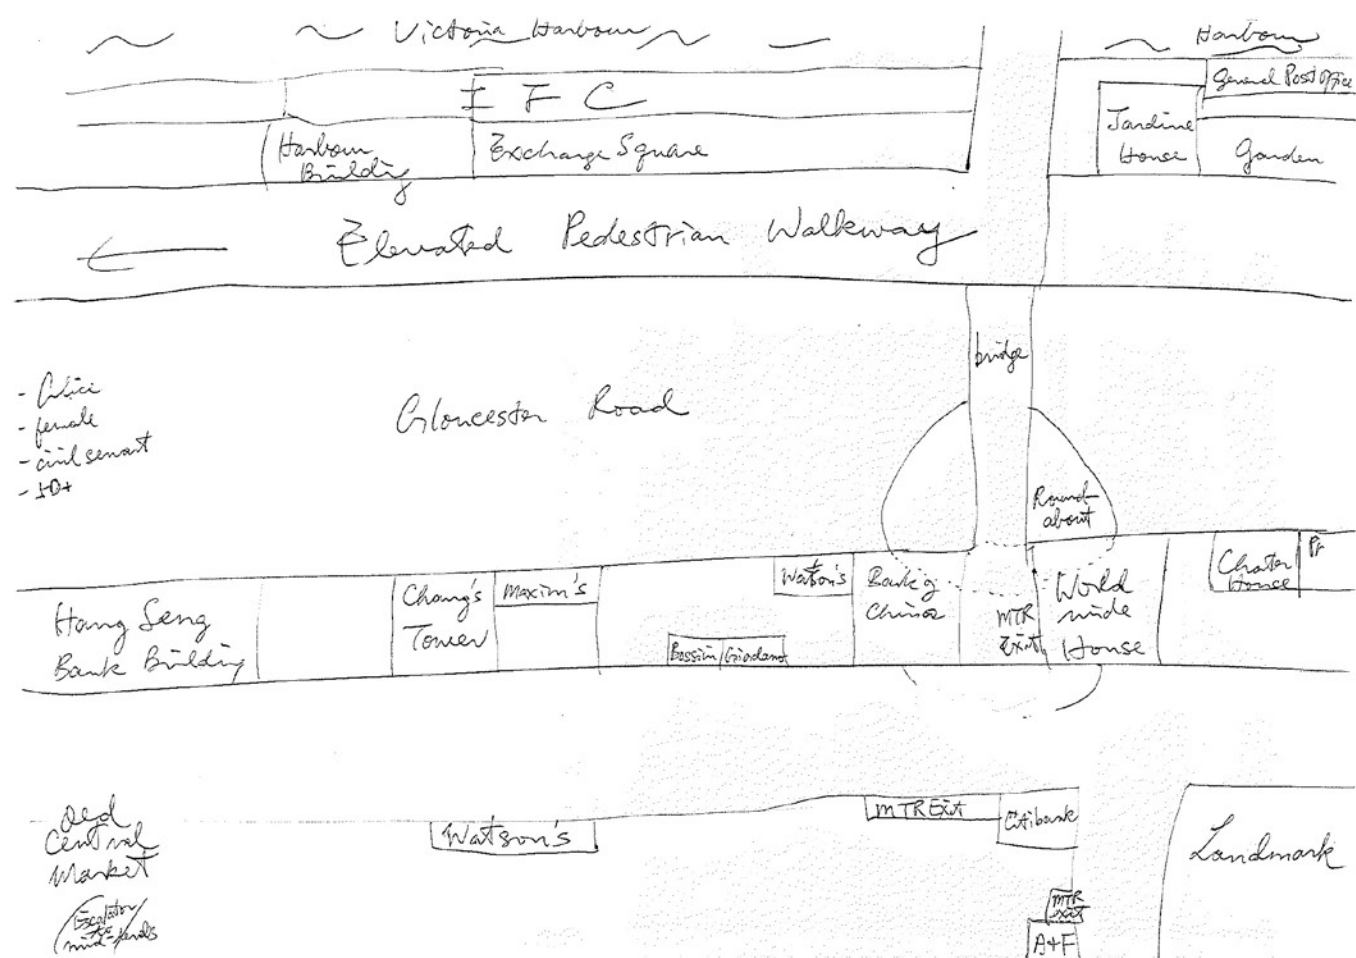 Victoria Harbour
Harbour
I F C
General Post Office
Harbour
Building
Exchange Square
Jardine
House
Garden
Elevated Pedestrian Walkway
bridge
- Alice
- female
- civil servant
- 50+
Gloucester Road
Round-
about
Hang Seng
Bank Building
Chang's
Tower
Maxim's
Bossini
Giordano
Watson's
Bank of
China
MTR
Exit
World
wide
House
Chater
House
Pr
Old
Central
Market
Escalator
to
mid-levels
Watson's
MTR Exit
Citibank
Landmark
MTR
exit
A+F